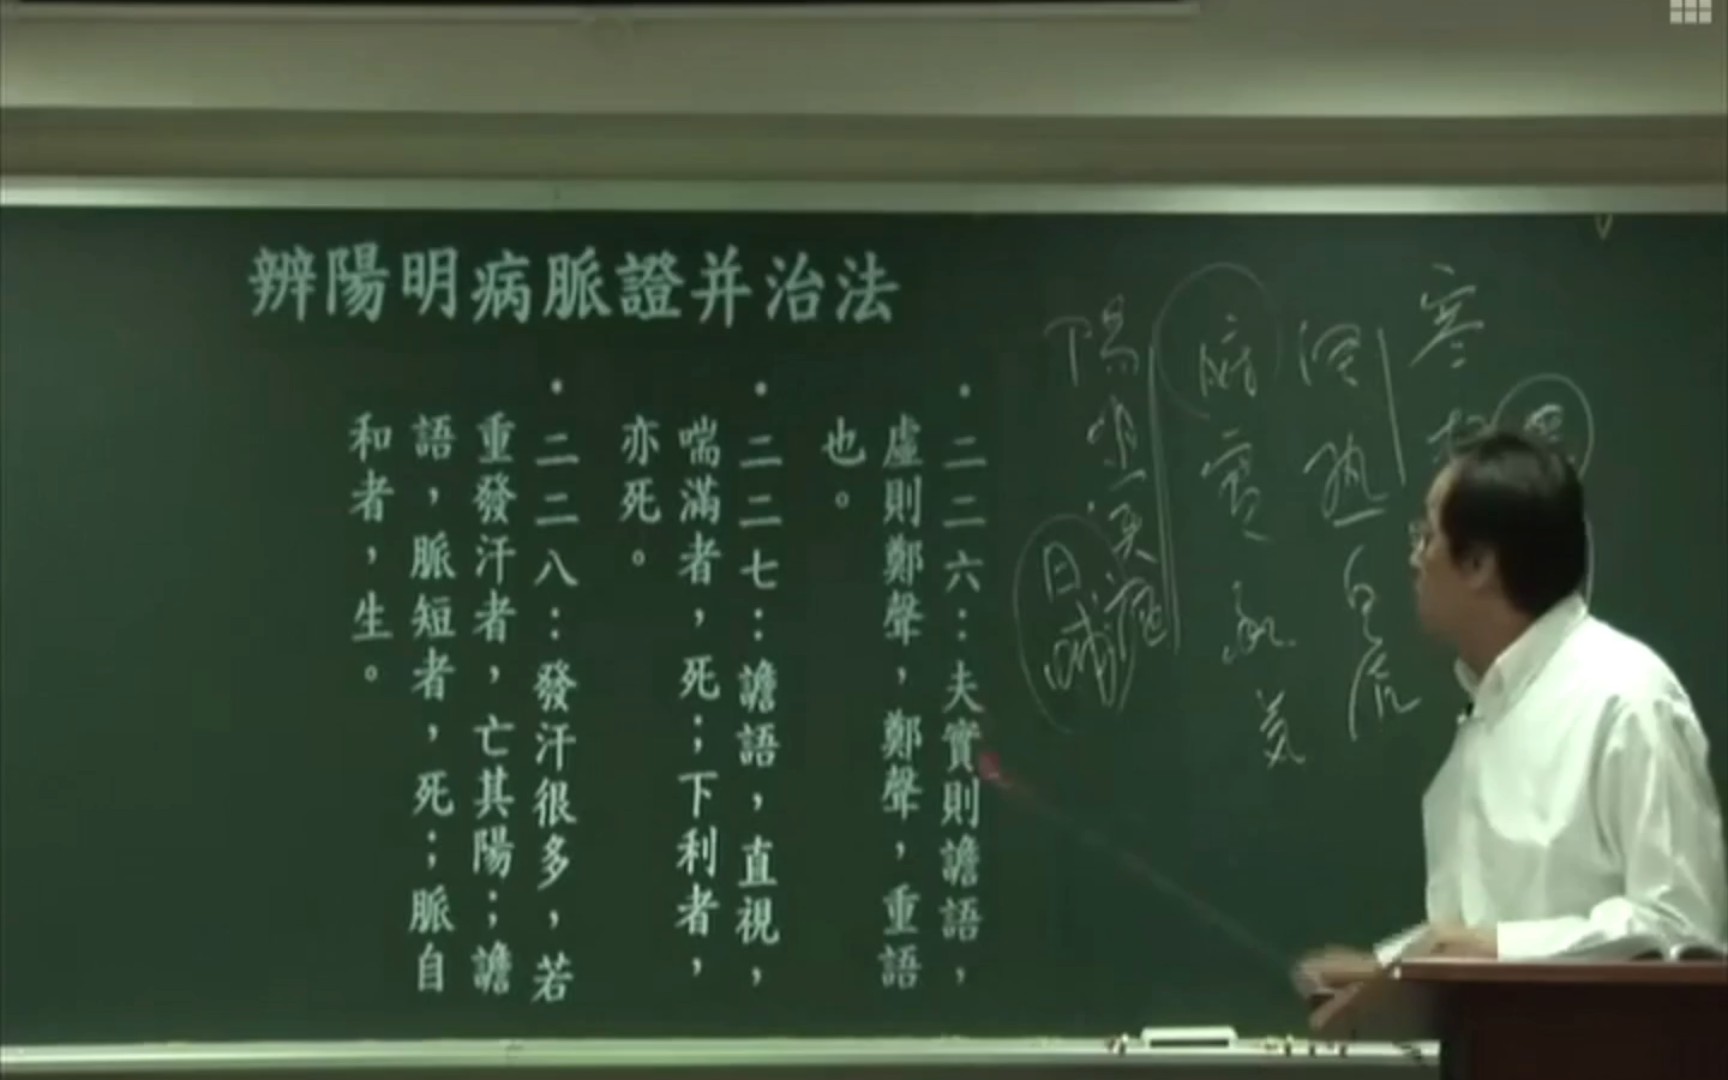 辨陽明病脈證并治法
・二二六：夫實則譫語，
虛則鄭聲，鄭聲，重語
也。
・二二七：譫語，直視，
喘滿者，死；下利者，
亦死。
・二二八：發汗很多，若
重發汗者，亡其陽；譫
語，脈短者，死；脈自
和者，生。
寒
熱白虎
腑實承氣
陽明
日晡